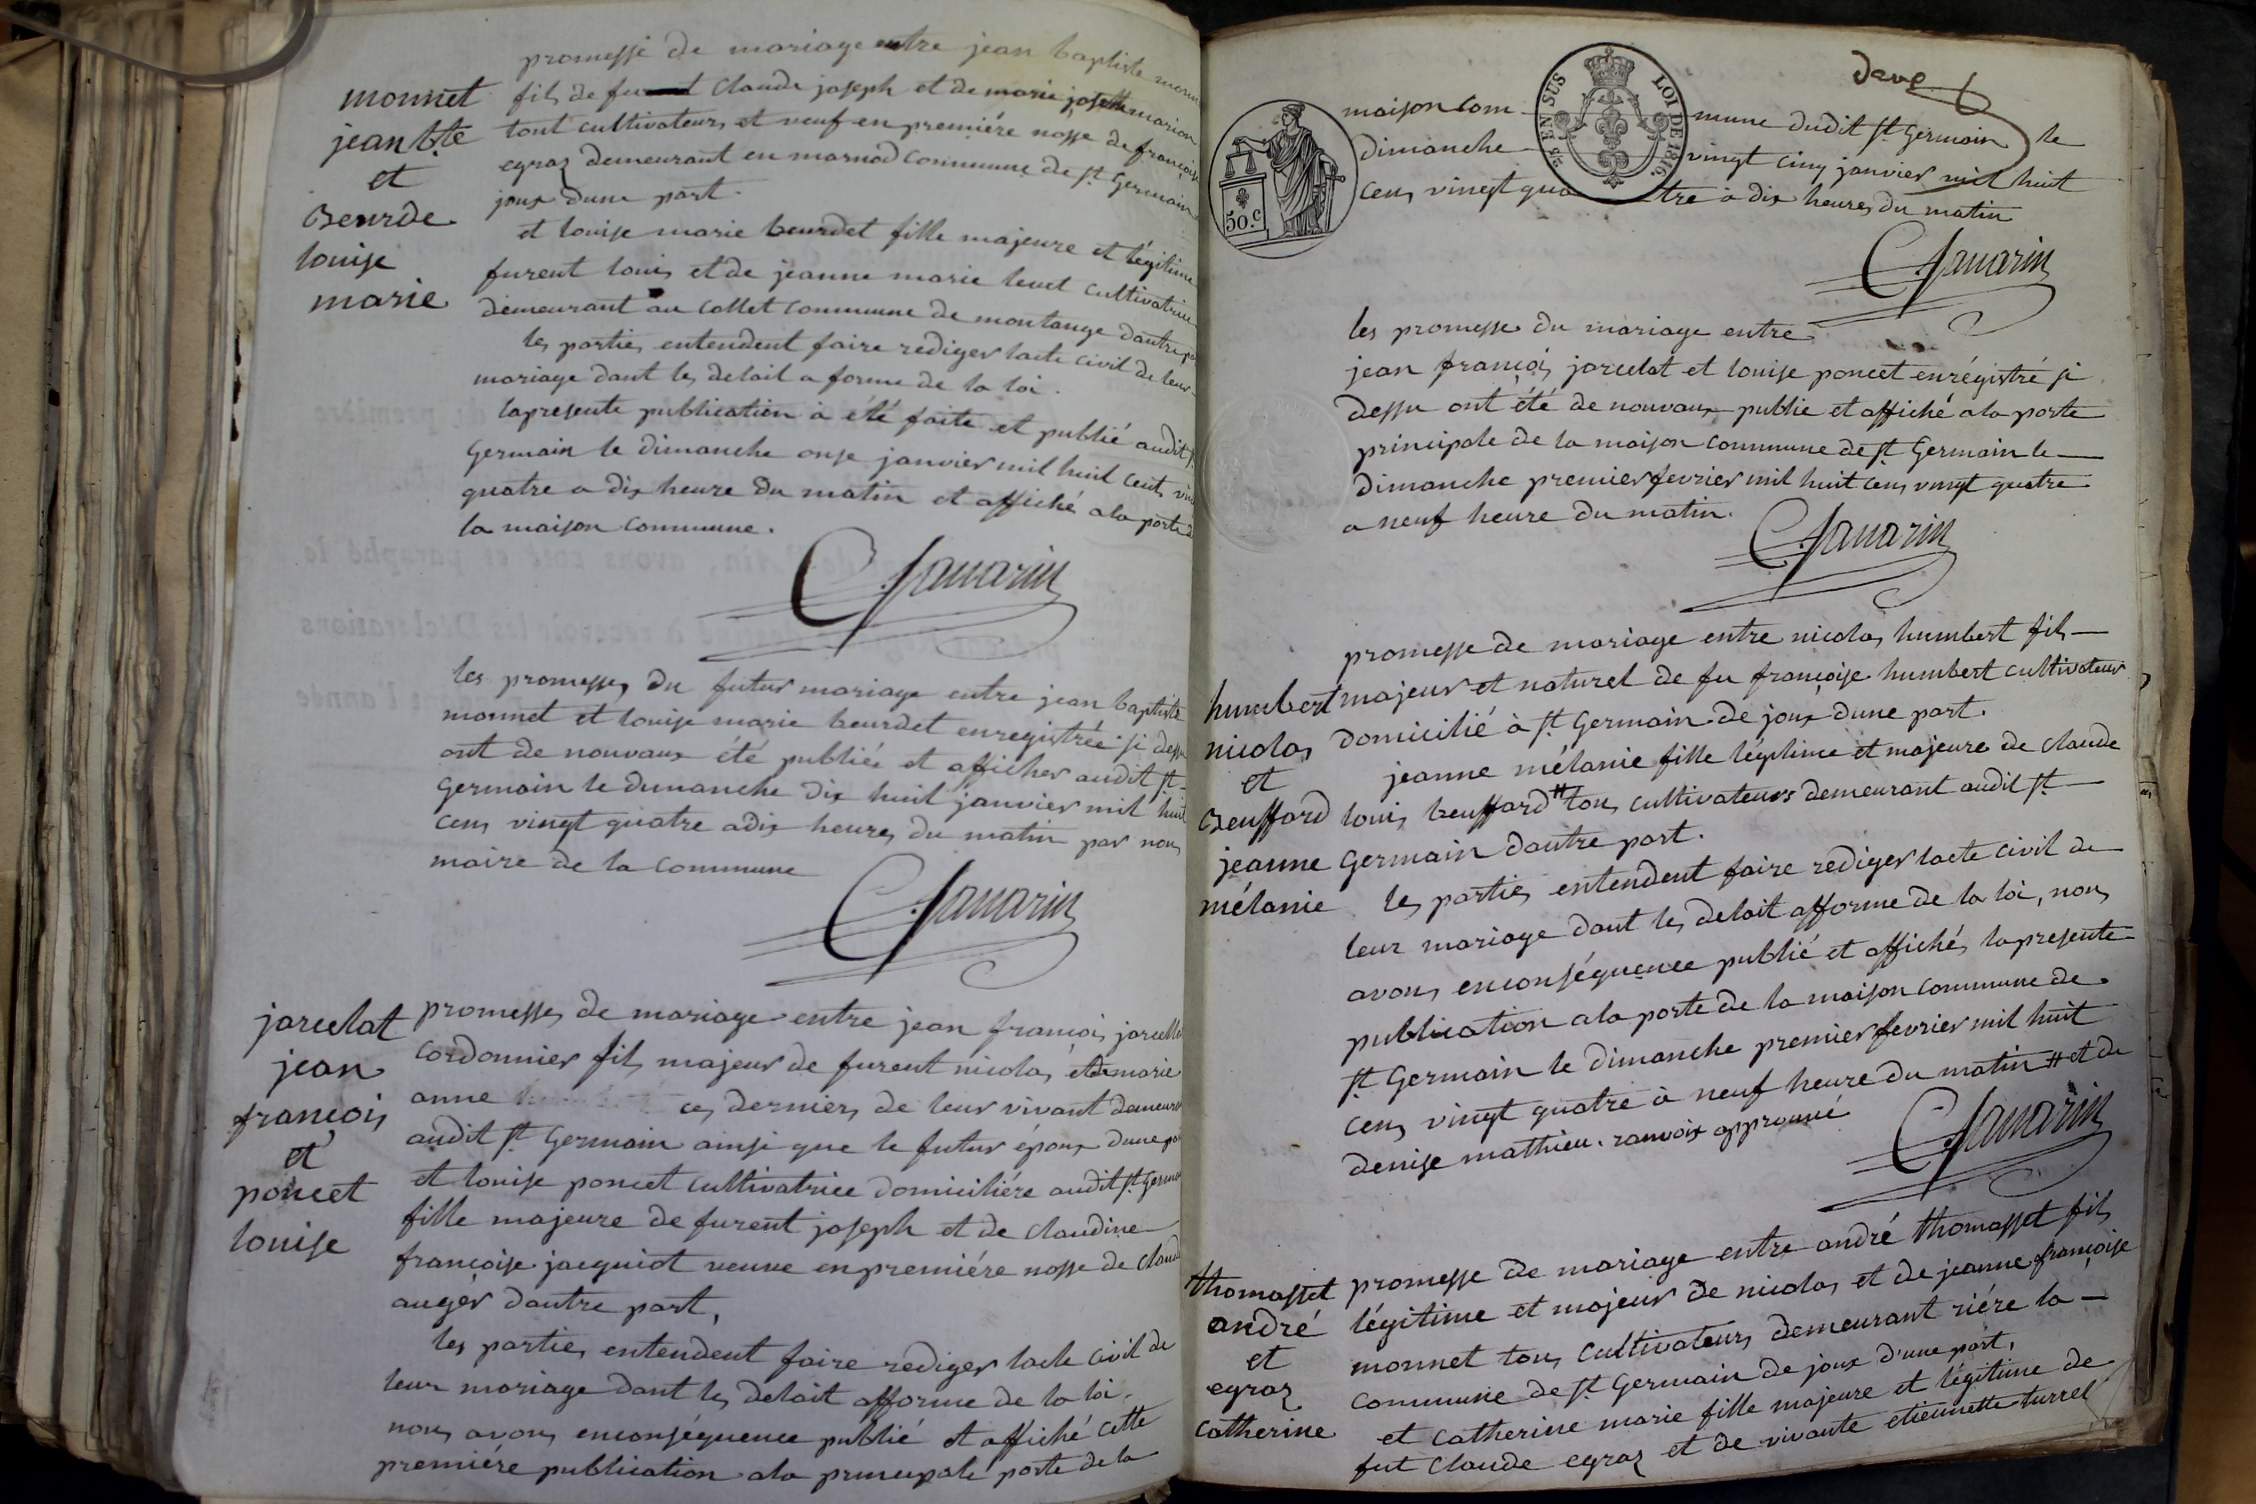 promesse de mariage entre jean baptiste
monnet
jean bte
et
Beurde
louise
marie
fils de furent Claude joseph et de marie josette marion
tout cultivateurs et neuf en premiére nosse de françoise
egraz demeurant en marnod commune de st Germain
joux dune part.
et louise marie beurdet fille majeure et légitime
furent louis et de jeanne marie levet cultivatrice
demeurant au collet commune de montange dautre
les parties entendent faire rediger lacte civil de leur
mariage dant les delait a forme de la loi.
lapresente publication à été faite et publié audit st
Germain le dimanche onse janvier mil huit cents
quatre a dix heure du matin et affiché ala porte
la maison commune.
C Savarin
les promesses du futur mariage entre jean baptiste
monnet et louise marie beurdet enregistrée si dessu
ont de nouvaux été publiée et afficher audit st
Germain le dimanche dix huit janvier mil huit
cens vingt quatre adix heures du matin par nous
maire de la commune
C Savarin
jarcelat
jean
françois
et
poncet
louise
promesses de mariage entre jean françois
cordonnier fils majeur de furent nicolas et de marie
anne ces derniers de leur vivant
audit st Germain ainsi que le futur époux dune
et louise poncet cultivatrice domiciliére audit st
fille majeure de furent joseph et de claudine
françoise jacquiot veuve en premiére nosse de
auger dautre part,
les parties entendent faire rediger lacte civil de
leur mariage dant les delait afforme de la loi.
nous avons enconséquence publié et affiché cette
premiére publication ala principale porte de la
EN SUS
LOI DE 1816.
50.c
maison commune dudit st Germain le
dimanche vingt cinq janvier mil huit
cens vingt quatre à dix heures du matin
C Savarin
les promesse du mariage entre
jean françois jarcelat et louise poncet enrégistré si
dessu ont été de nouvaux publie et affiché ala porte
principale de la maison commune de st Germain le
dimanche premier fevrier mil huit cens vingt quatre
a neuf heure du matin.
C Savarin
humbert
nicolas
et
Beuffard
jeanne
mélanie
promesse de mariage entre nicolas humbert fils
majeur et naturel de fu françoise humbert cultivateur
domicilié à st Germain de joux dune part.
jeanne mélanie fille légitime et majeure de claude
louis beuffard # tous cultivateurs demeurant audit st
Germain dautre part.
les parties entendent faire rediger lacte civil de
leur mariage dant les delait afforme de la loi, nous
avons enconséquence publié et affichés lapresente
publication ala porte de la maison commune de
st Germain le dimanche premier fevrier mil huit
cens vingt quatre à neuf heure du matin # et de
denise mathieu. ranvoix approuvé
C Savarin
thomasset
andré
et
egraz
catherine
promesse de mariage entre andré thomasset fils
légitime et majeur de nicolas et de jeanne françoise
monnet tous cultivateurs demeurant riére la
commune de st Germain de joux d'une part,
et catherine marie fille majeure et légitime de
fut claude egraz et de vivante etiennette turrel